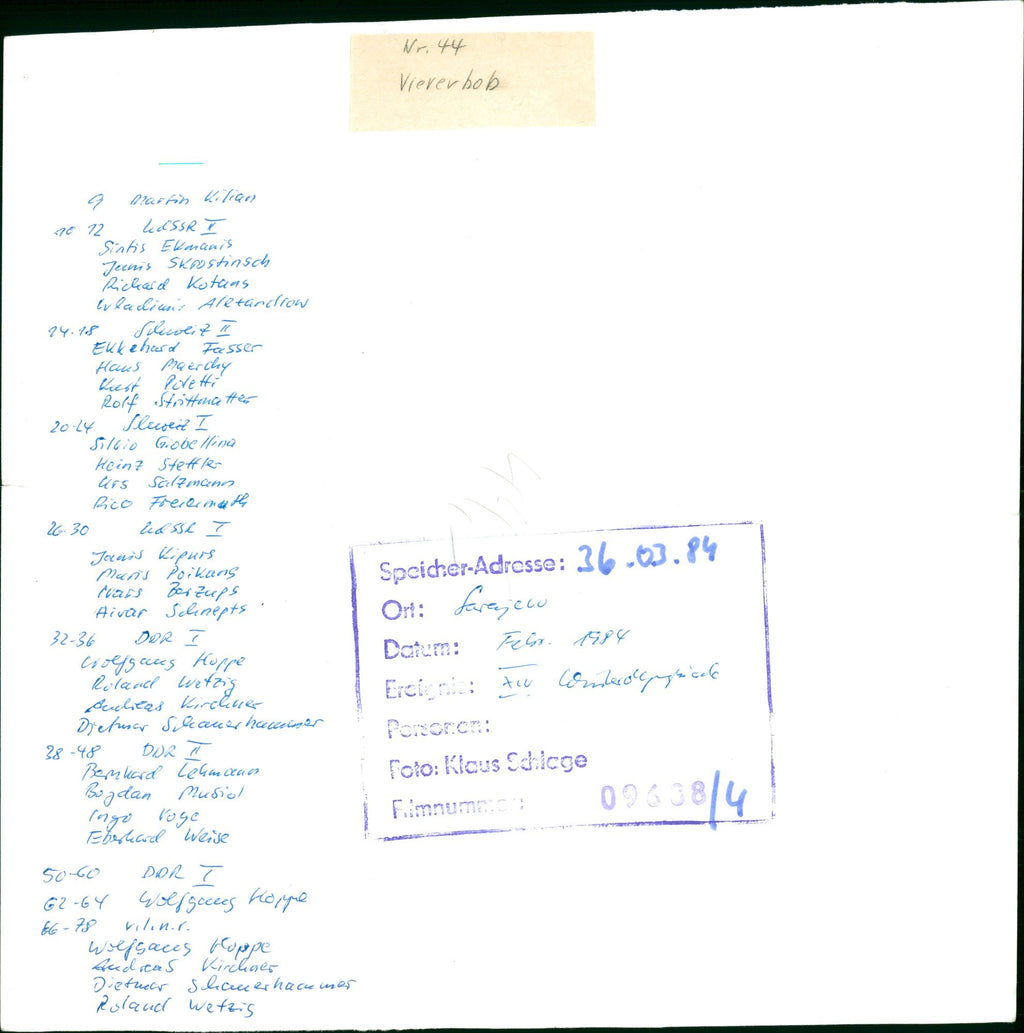 Nr. 44
Viererbob
9 Martin Kilian
10 12 UdSSR II
Sintis Ekmanis
Janis Skrostinsch
Richard Kotans
Wladimir Alexandrow
14-18 Schweiz II
Ekkehard Fasser
Hans Maerchy
Kurt Poletti
Rolf Strittmatter
20-24 Schweiz I
Silvio Giobellina
Heinz Stettler
Urs Salzmann
Rico Freiermuth
26-30 UdSSR I
Janis Kipurs
Maris Poikans
Ivars Berzups
Aivar Schnepts
32-36 DDR I
Wolfgang Hoppe
Roland Wetzig
Andreas Kirchner
Dietmar Schauerhammer
38-48 DDR II
Bernhard Lehmann
Bogdan Musiol
Ingo Voge
Eberhard Weise
50-60 DDR I
62-64 Wolfgang Hoppe
66-78 v.l.n.r.
Wolfgang Hoppe
Andreas Kirchner
Dietmar Schauerhammer
Roland Wetzig
Speicher-Adresse: 36.03.84
Ort: Sarajewo
Datum: Febr. 1984
Ereignis: XIV Winterolympiade
Personen:
Foto: Klaus Schlage
Filmnummer: 09638/4